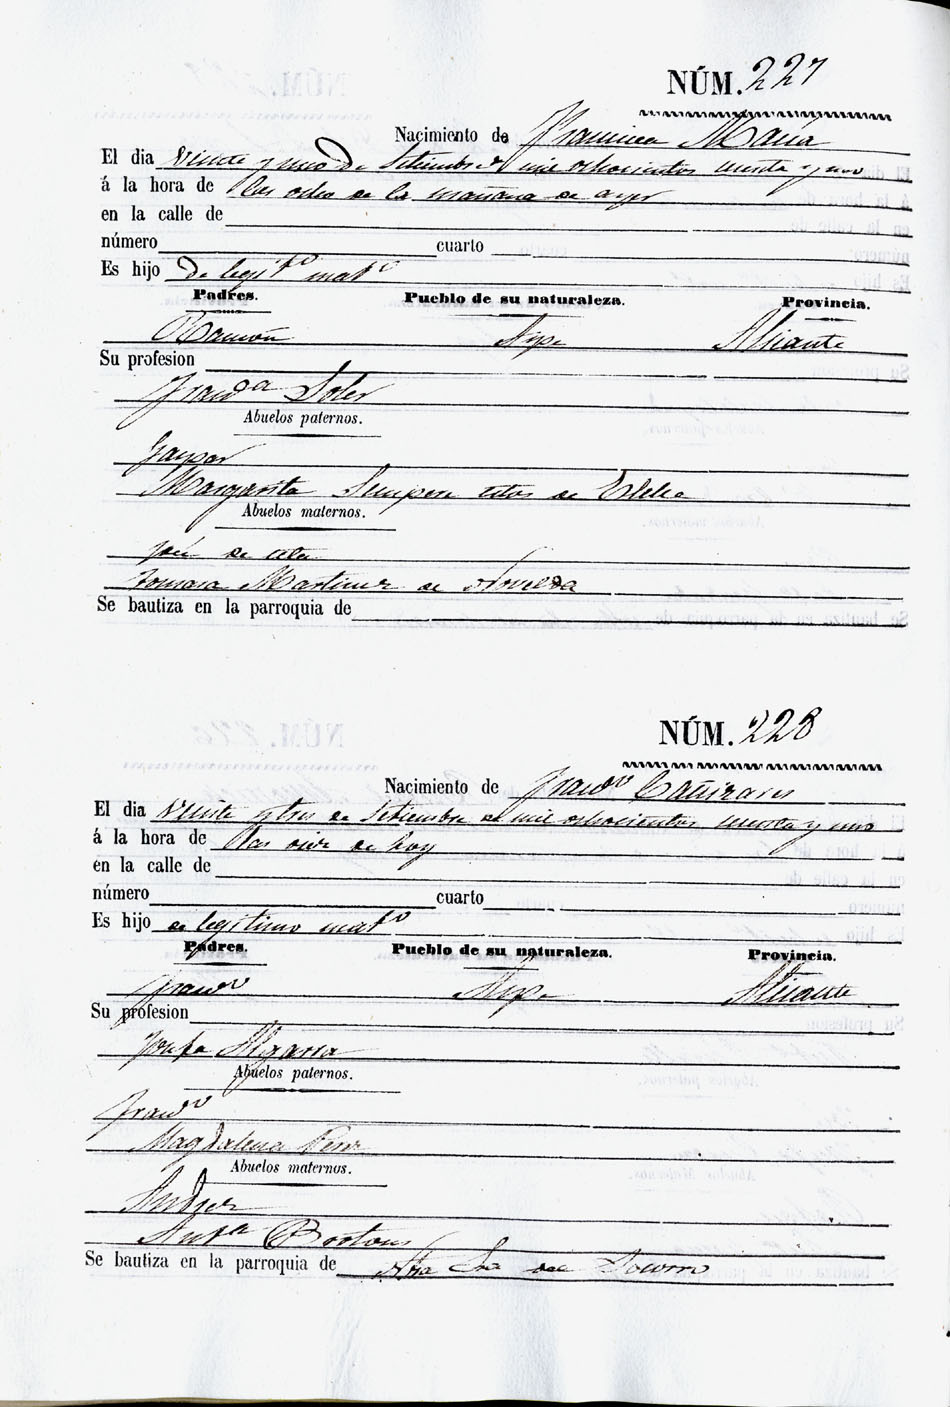 NÚM. 227
Nacimiento de Francisca María
El dia veinte y uno de Setiembre de mil ochocientos sesenta y uno
á la hora de las ocho de la mañana de ayer
en la calle de
número cuarto
Es hijo de legítº matº
Padres. Pueblo de su naturaleza. Provincia.
Ramón Aspe Alicante
Su profesion
Francª Soler
Abuelos paternos.
Gaspar
Margarita Sempere de
Abuelos maternos.
José de
Tomasa Martinez de Novelda
Se bautiza en la parroquia de
NÚM. 228
Nacimiento de Francº Cañizares
El dia veinte y tres de Setiembre de mil ochocientos sesenta y uno
á la hora de las de hoy
en la calle de
número cuarto
Es hijo de legítimo matº
Padres. Pueblo de su naturaleza. Provincia.
Francº Aspe Alicante
Su profesion
Josefa Algarra
Abuelos paternos.
Francº
Magdalena Perez
Abuelos maternos.
Andres
Antª
Se bautiza en la parroquia de Ntra Sra del Socorro